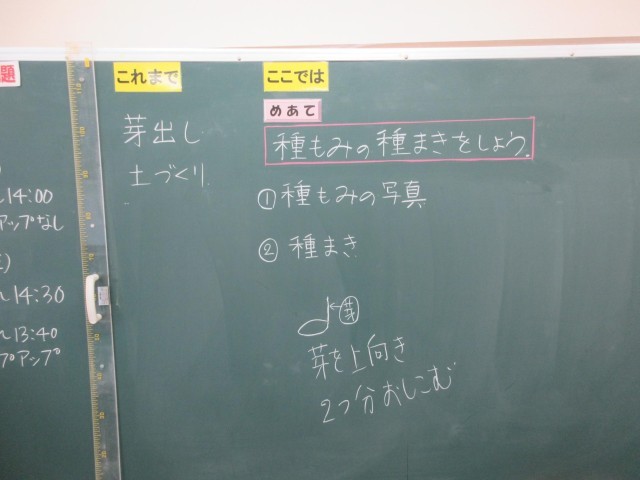 題
14:00
アップなし
14:30
13:40
プアップ
これまで
芽出し
土づくり
ここでは
めあて
種もみの種まきをしよう。
①種もみの写真
②種まき
芽
芽を上向き
2つ分おしこむ